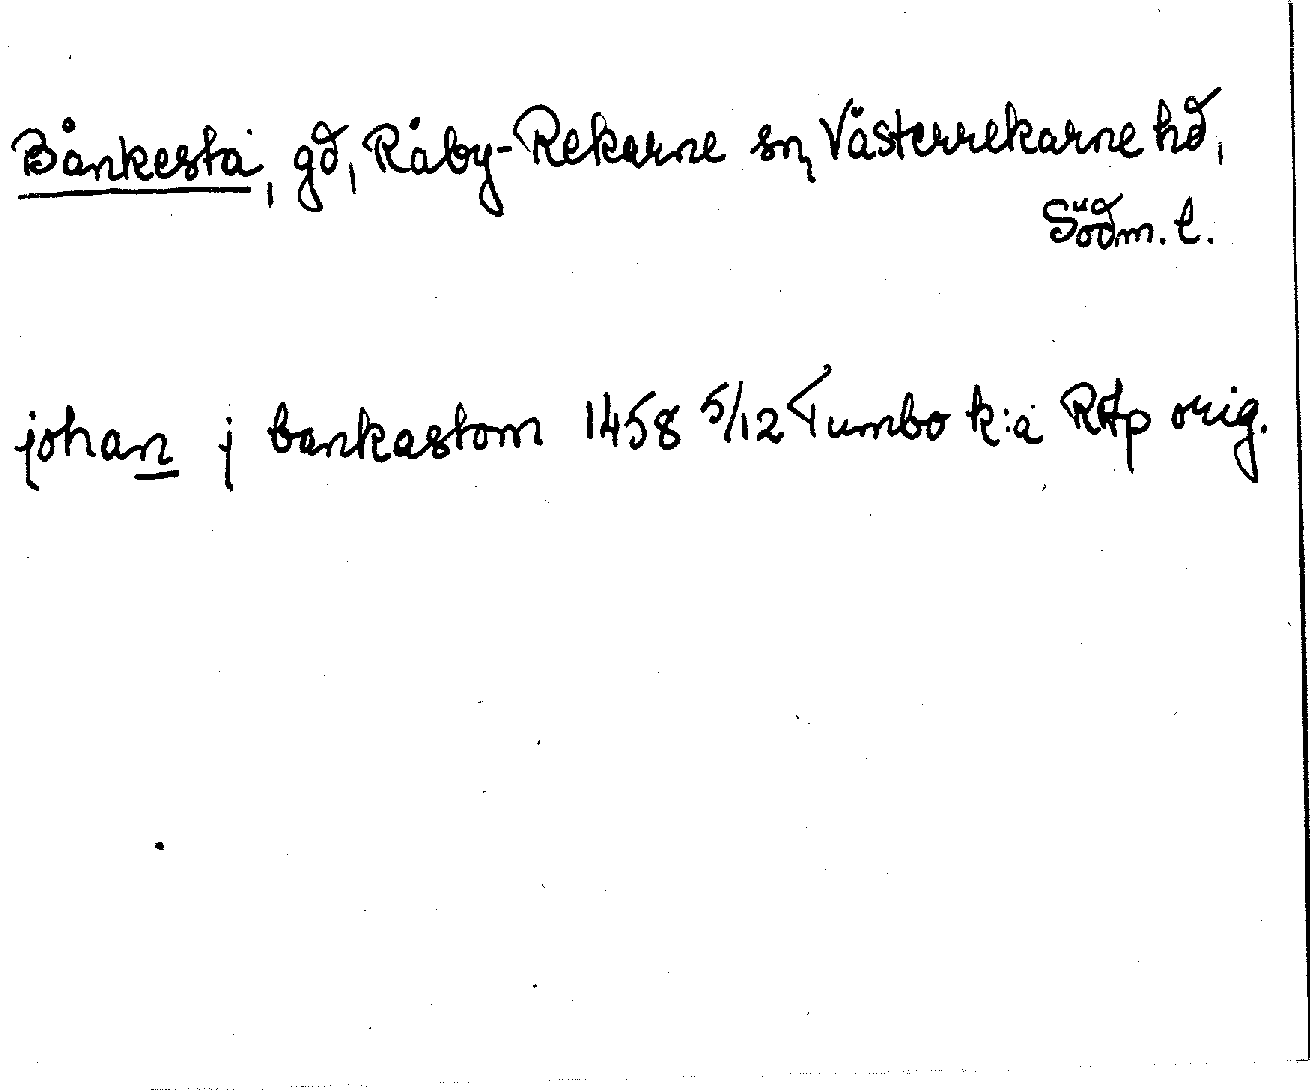 Bånkesta, gd, Råby-Rekarne sn, Västerrekarne hd,
Södm. l.
johan j bankastom 1458 5/12 Tumbo k:a RAp orig.